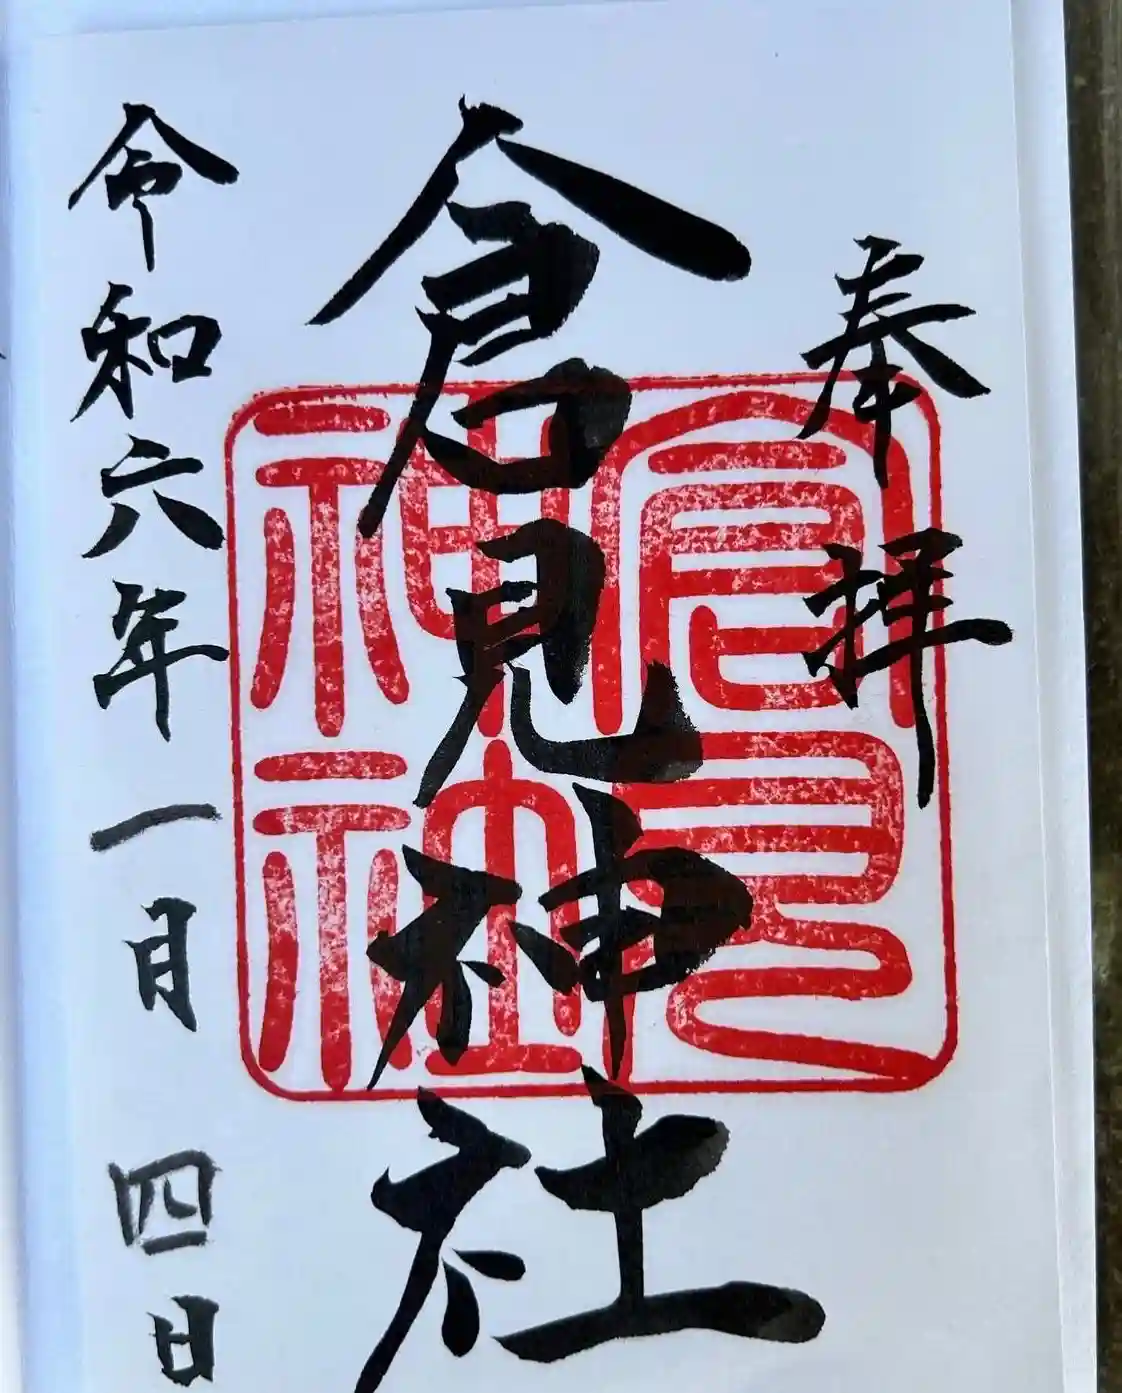 奉拝
倉見神社
倉見
神社
令和六年一月四日